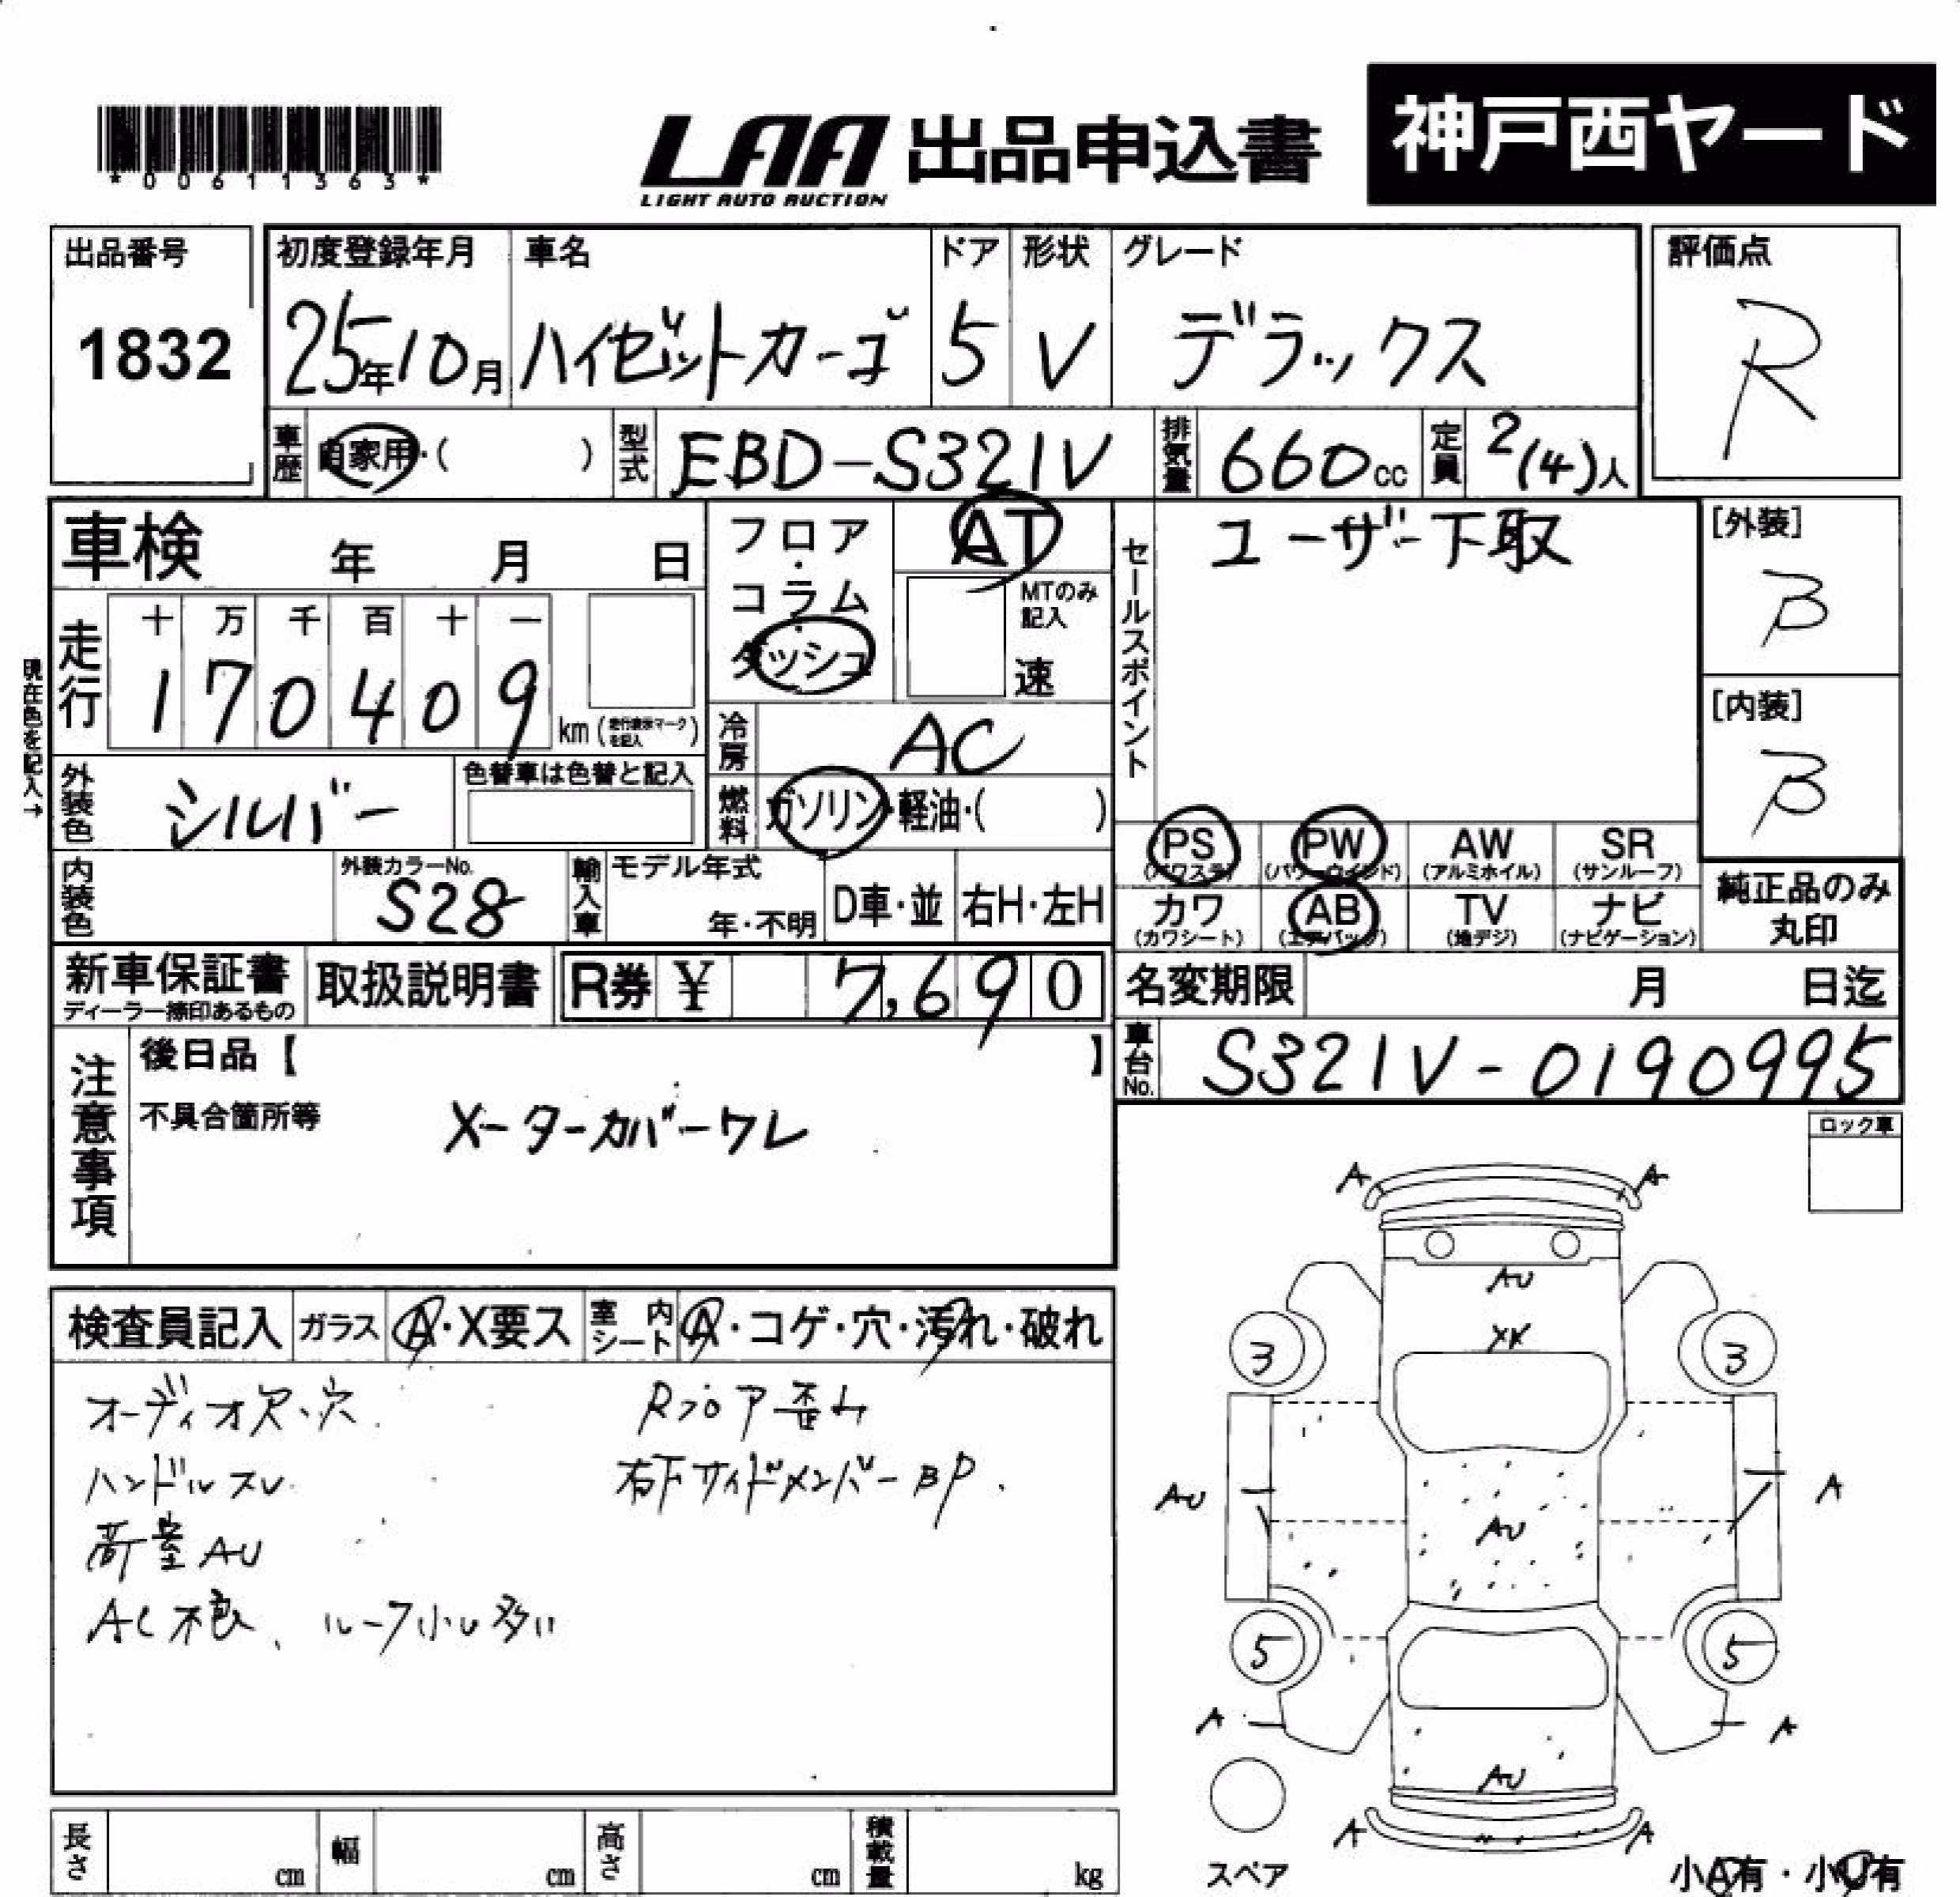 *00611363*
LAA 出品申込書
LIGHT AUTO AUCTION
神戸西ヤード
出品番号
1832
初度登録年月
25年10月
車名
ハイゼットカーゴ
ドア
5
形状
V
グレード
デラックス
評価点
R
車歴
自家用・( )
型式
EBD-S321V
排気量
660cc
定員
2(4)人
車検 年 月 日
現在色を記入→
走行
十 万 千 百 十 一
1 7 0 4 0 9
km (走行表示マークを記入)
フロア・コラム・ダッシュ
AT
MTのみ記入
速
冷房
AC
燃料
ガソリン・軽油・( )
セールスポイント
ユーザー下取
[外装]
B
[内装]
B
外装色
シルバー
色替車は色替と記入
内装色
外装カラーNo.
S28
輸入車
モデル年式
年・不明
D車・並
右H・左H
PS (パワステ)
PW (パワーウインド)
AW (アルミホイル)
SR (サンルーフ)
カワ (カワシート)
AB (エアバッグ)
TV (地デジ)
ナビ (ナビゲーション)
純正品のみ
丸印
新車保証書
ディーラー捺印あるもの
取扱説明書
R券 ¥ 7,690
名変期限 月 日迄
車台No.
S321V-0190995
注意事項
後日品【 】
不具合箇所等
メーターカバーワレ
ロック車
検査員記入
ガラス
A・X要ス
室内シート
A・コゲ・穴・汚れ・破れ
オーディオ欠、穴
Rフロア歪ム
ハンドルスレ
右下サイドメンバーBP.
荷室AU
AC不良、ルーフ小U多い
A A
AU
XX
3 3
AU A
AU
5 5
A A
AU
A A
スペア
小A有・小U有
長さ cm
幅 cm
高さ cm
積載量 kg